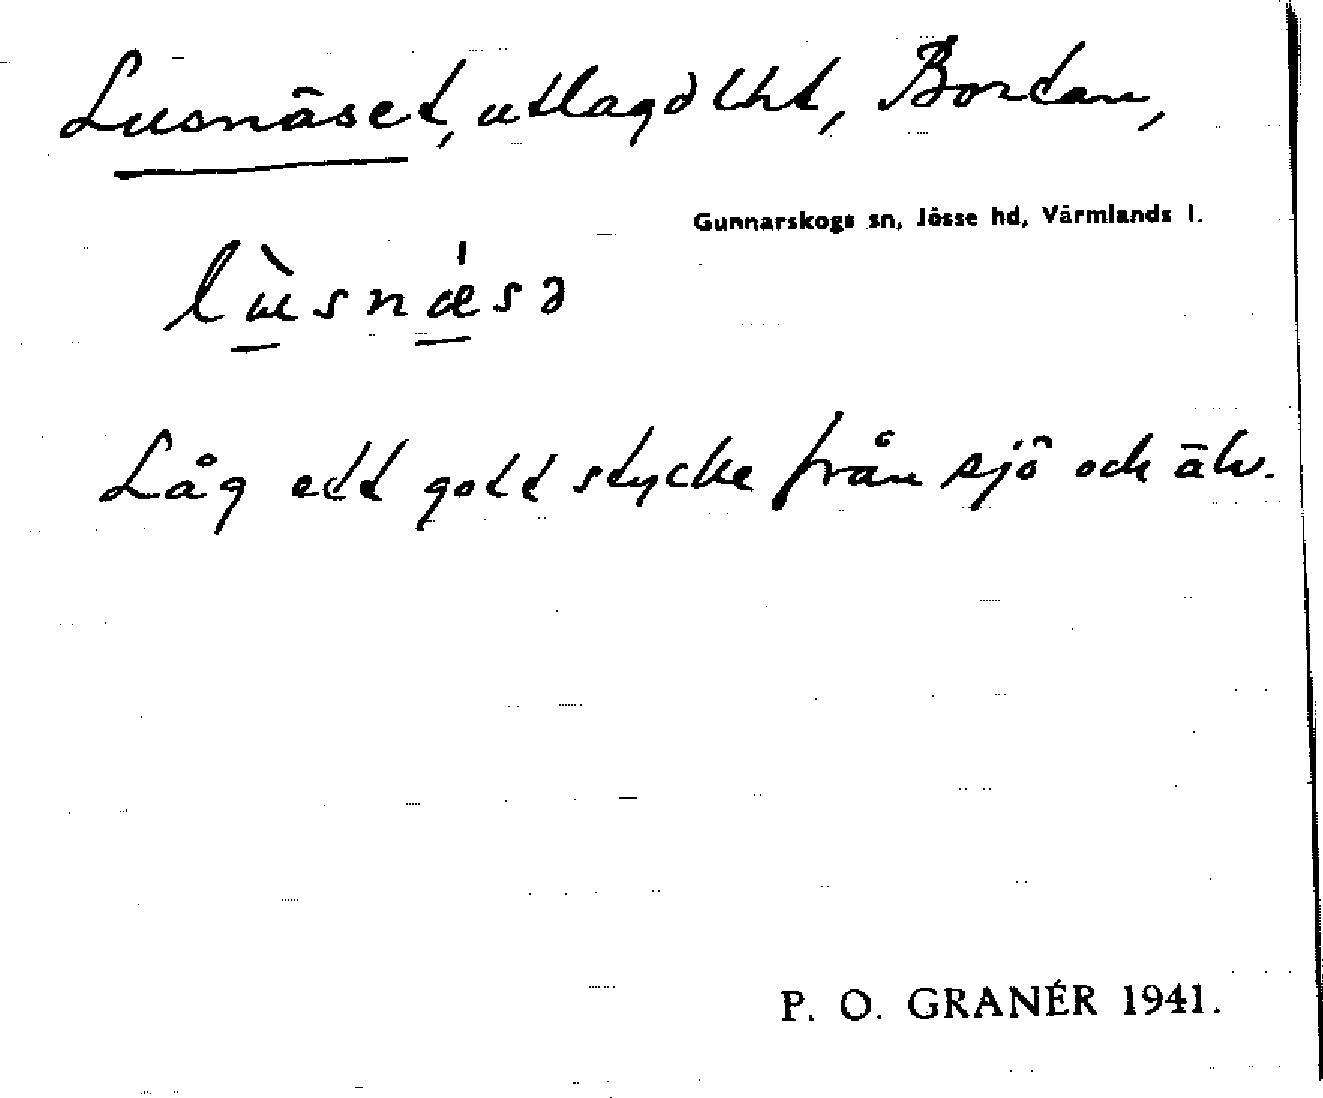 Lusnäset, utlagd lht, Bortan,
Gunnarskogs sn, Jösse hd, Värmlands l.
lùsnǽsə
Låg ett gott stycke från sjö och älv.
P. O. GRANÉR 1941.